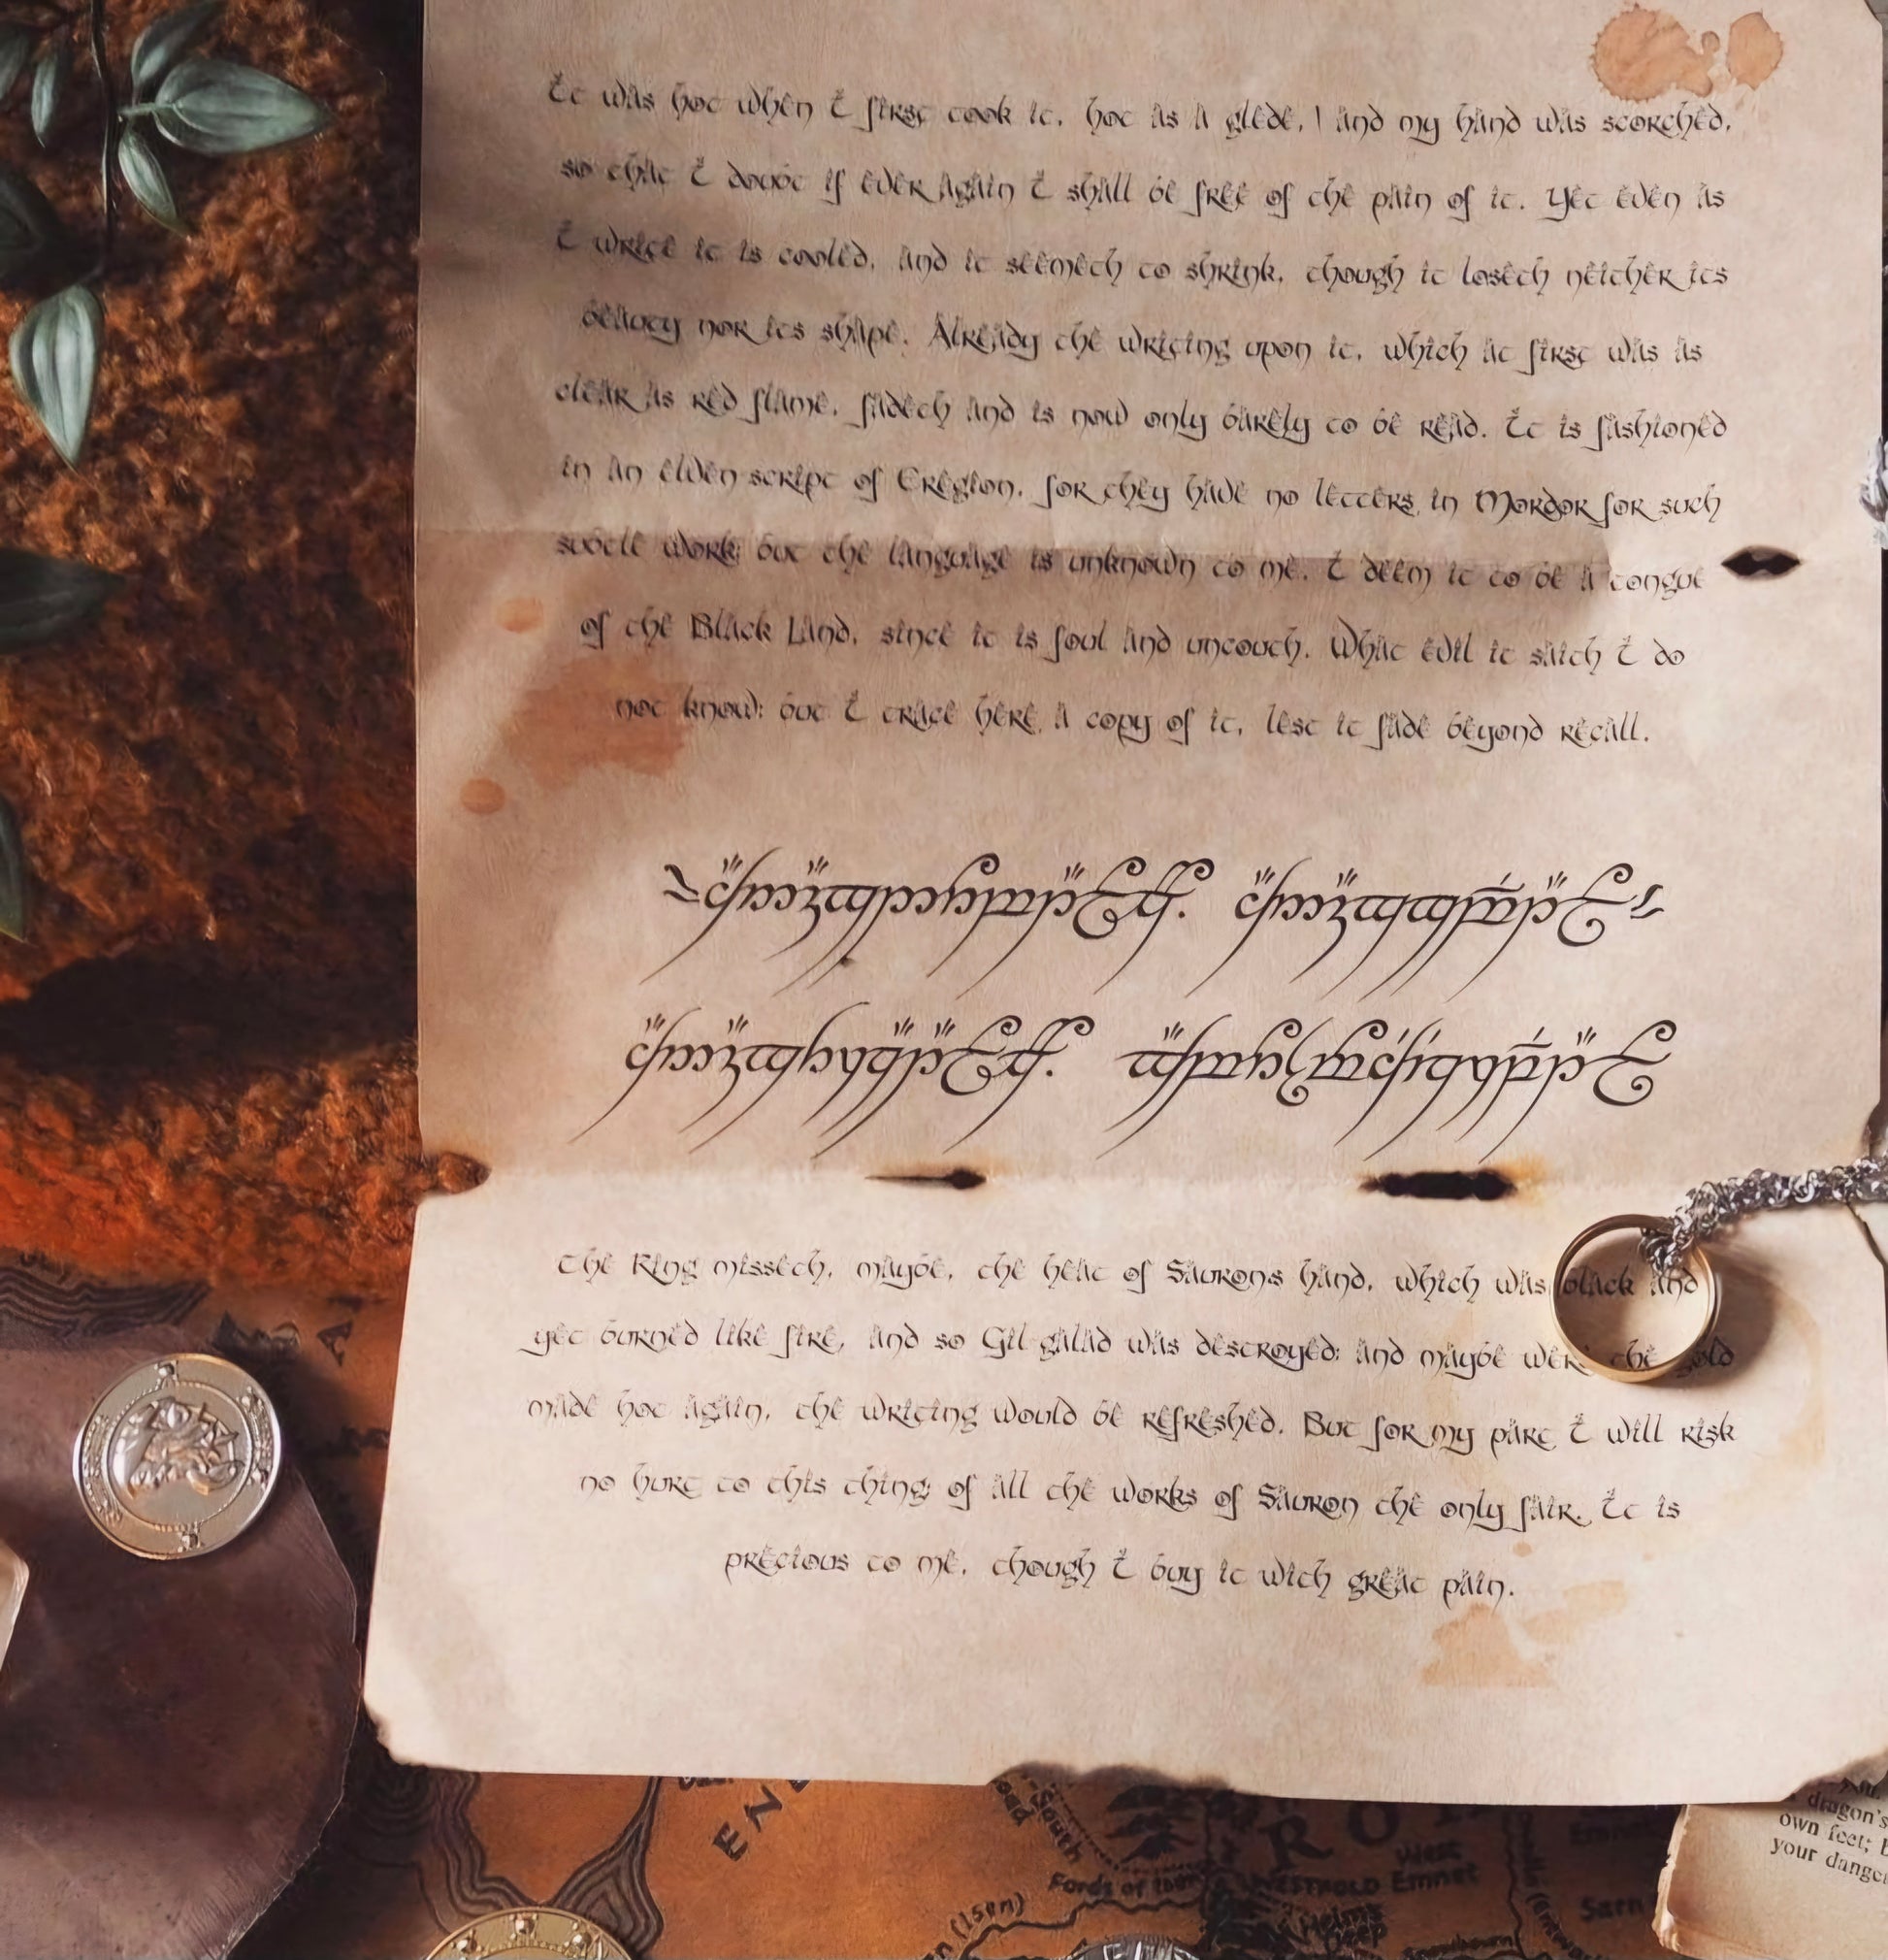 It was hot when I first took it, hot as a glede, | and my hand was scorched,
so that I doubt if ever again I shall be free of the pain of it. Yet even as
I write it is cooled, and it seemeth to shrink, though it loseth neither its
beauty nor its shape. Already the writing upon it, which at first was as
clear as red flame, fadeth and is now only barely to be read. It is fashioned
in an elven-script of Eregion, for they have no letters in Mordor for such
subtle work; but the language is unknown to me. I deem it to be a tongue
of the Black Land, since it is foul and uncouth. What evil it saith I do
not know; but I trace here a copy of it, lest it fade beyond recall.
The Ring misseth, maybe, the heat of Saurons hand, which was black and
yet burned like fire, and so Gil-galad was destroyed; and maybe were the gold
made hot again, the writing would be refreshed. But for my part I will risk
no hurt to this thing; of all the works of Sauron the only fair. It is
precious to me, though I buy it with great pain.
South
Fords of Isen
WESTFOLD
West
Emnet
Helms
Deep
(Isen)
Sarn
dragon's
own feet;
your